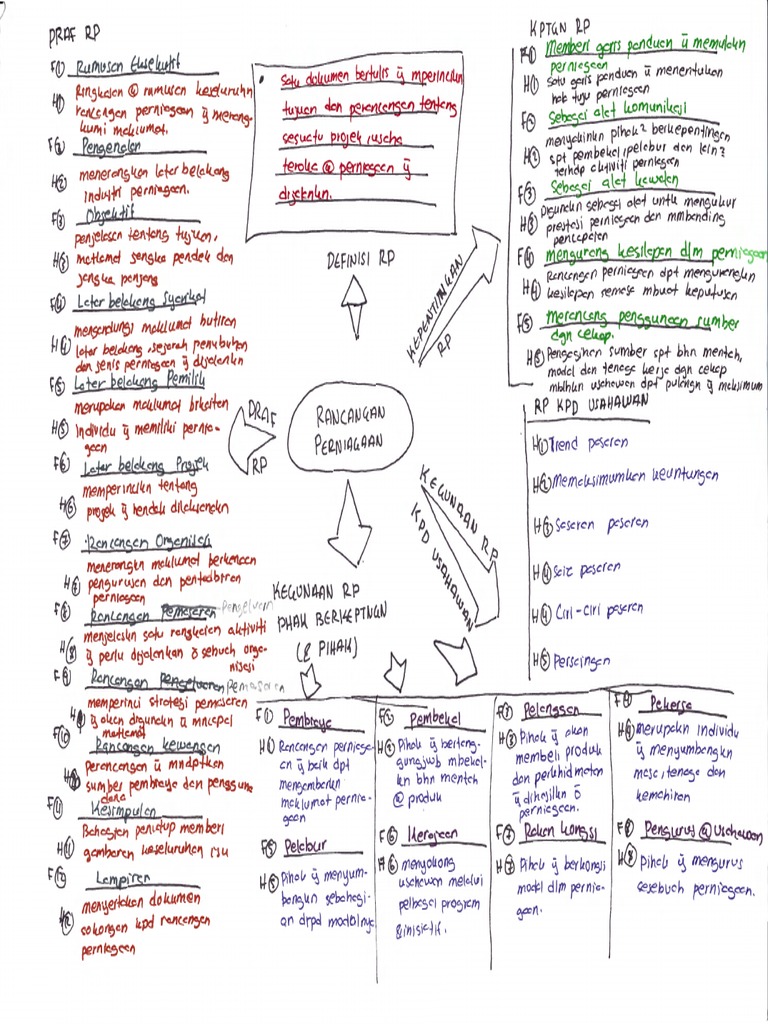 DRAF RP
F① Rumusan Eksekutif
H① Ringkasan @ rumusan keseluruhn
rancangan perniagaan ÿ merang-
kumi maklumat.
F② Pengenalan
H② menerangkan latar belakang
industri perniagaan.
F③ Objektif
penjelasan tentang tujuan,
H③ matlamat jangka pendek dan
jangka panjang
F④ Latar belakang Syarikat
mengandungi maklumat butiran
H④ latar belakang, sejarah penubuhan
dan jenis perniagaan ÿ dijalankn
F⑤ Latar belakang Pemilik
merupakan maklumat brkaitan
H⑤ individu ÿ memiliki pernia-
gaan
F⑥ Latar belakang Projek
memperincikn tentang
H⑥ projek ÿ hendak dilaksanakn
F⑦ Rancangan Organisasi
menerangkn maklumat berkenaan
H⑦ pengurusan dan pentadbiran
perniagaan
F⑧ Rancangan Pemasaran Pengeluaran
menjelaskn satu rangkaian aktiviti
H⑧ ÿ perlu dijalankan ō sebuah orga-
nisasi
F⑨ Rancangan Pengeluaran Pemasaran
memperinci strategi pemasaran
H⑨ ÿ akan digunakn ū mncapai
matlamat
F⑩ Rancangan kewangan
Perancangan ū mndptkan
H⑩ sumber pembiaya dan pengguna
dana
F⑪ Kesimpulan
Bahagian penutup memberi
H⑪ gambaran keseluruhan isu
F⑫ Lampiran
menyertakan dokumen
H⑫ sokongan kpd rancangan
perniagaan
• Satu dokumen bertulis ÿ mperincikn
tujuan dan perancangan tentang
sesuatu projek, usaha
teroka @ perniagaan ÿ
dijalankn.
DEFINISI RP
KEPENTINGAN
RP
DRAF
RP
RANCANGAN
PERNIAGAAN
KEGUNAAN RP
KPD USAHAWAN
KEGUNAAN RP
PHAK BERKEPTNGN
(8 PIHAK)
KPTGN RP
F① Memberi garis panduan ū memulakn
perniagaan
H① Satu garis panduan ū menentukan
hak tuju perniagaan
F② Sebagai alat komunikasi
menyakinkn pihak² berkepentingan
H② spt pembekal, pelabur dan lain²
terhdp aktiviti perniagaan
F③ Sebagai alat kawalan
H③ Digunakn sebagai alat untk mengukur
prestasi perniagaan dan mmbanding
pencapaian
F④ mengurang kesilapan dlm perniagaan
H④ Rancangan perniagaan dpt mengurangkn
kesilapan semasa mbuat keputusan
F⑤ Merancang penggunaan sumber
dgn cekap.
H⑤ Pengagihan sumber spt bhn mentah,
modal dan tenaga kerja dgn cekap
mblhkn usahawan dpt pulangn ÿ maksimum
RP KPD USAHAWAN
H① Trend pasaran
H② Memaksimumkan keuntungan
H③ Sasaran pasaran
H④ Saiz pasaran
H④ Ciri-ciri pasaran
H⑤ Persaingan
F① Pembiaya
H① Rancangan perniaga-
an ÿ baik dpt
mengambarkn
maklumat pernia-
gaan
F② Pembekal
H② Pihak ÿ bertang-
gungjwb mbekal-
kn bhn mentah
@ produk
F③ Pelanggan
H③ Pihak ÿ akan
membeli produk
dan perkhidmatan
ÿ dihasilkn ō
perniagaan.
F④ Pekerja
H④ merupakn individu
ÿ menyumbangkn
masa, tenaga dan
kemahiran
F⑤ Pelabur
H⑤ Pihak ÿ menyum-
bangkn sebahagi-
an drpd modalnya
F⑥ Kerajaan
H⑥ menyokong
usahawan melalui
pelbagai program
& inisiatif.
F⑦ Rakan kongsi
H⑦ Pihak ÿ berkongsi
modal dlm pernia-
gaan.
F⑧ Pengurus @ Usahawan
H⑧ Pihak ÿ mengurus
sesebuah perniagaan.